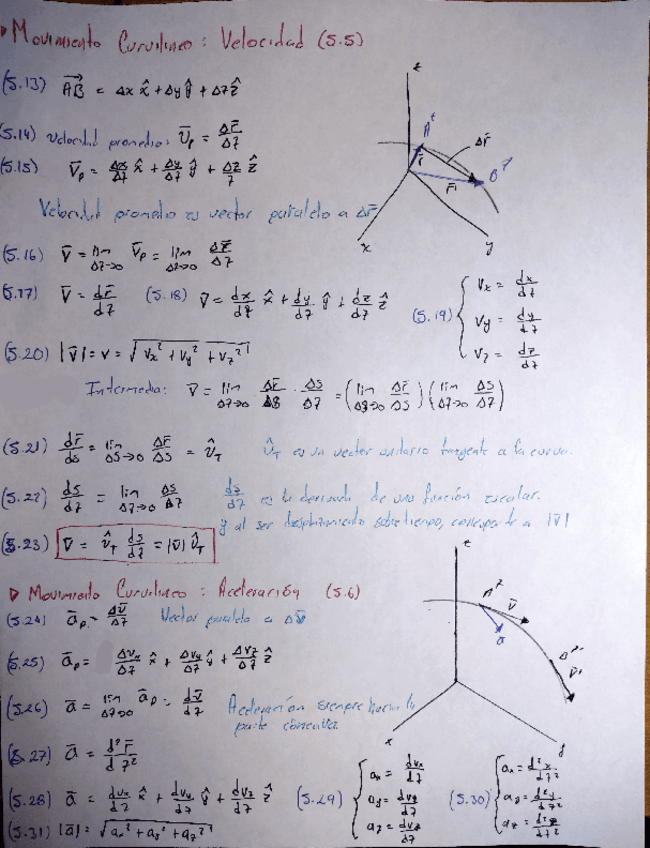 ▷ Movimiento Curvilineo : Velocidad (5.5)
(5.13) AB⃗ = Δx x̂ + Δy ŷ + Δz ẑ
(5.14) velocidad promedio: v̄p = Δr̄/Δt
(5.15) v̄p = Δx/Δt x̂ + Δy/Δt ŷ + Δz/t ẑ
Velocidad promedio es vector paralelo a Δr̄
z
A t
Δr̄
r̄
r̄'
B t'
x
y
(5.16) v̄ = lim Δt→0 v̄p = lim Δt→0 Δr̄/Δt
(5.17) v̄ = dr̄/dt (5.18) v̄ = dx/dt x̂ + dy/dt ŷ + dz/dt ẑ
(5.19) { vx = dx/dt
vy = dy/dt
vz = dz/dt
(5.20) |v̄| = v = √(vx² + vy² + vz²)
Intermedio: v̄ = lim Δt→0 Δr̄/Δs · Δs/Δt = (lim Δs→0 Δr̄/Δs) (lim Δt→0 Δs/Δt)
(5.21) dr̄/ds = lim Δs→0 Δr̄/Δs = û_T û_T es un vector unitario tangente a la curva.
(5.22) ds/dt = lim Δt→0 Δs/Δt ds/dt es la derivada de una función escalar.
y al ser desplazamiento sobre tiempo, corresponde a |v̄|
(5.23) v̄ = û_T ds/dt = |v̄| û_T
▷ Movimiento Curvilineo : Aceleración (5.6)
(5.24) āp = Δv̄/Δt Vector paralelo a Δv̄
(5.25) āp = Δvx/Δt x̂ + Δvy/Δt ŷ + Δvz/Δt ẑ
(5.26) ā = lim Δt→0 āp = dv̄/dt Aceleración siempre hacia la
parte cóncava.
z
A t
v̄
a
v̄'
x
y
(5.27) ā = d²r̄/dt²
(5.28) ā = dvx/dt x̂ + dvy/dt ŷ + dvz/dt ẑ
(5.29) { ax = dvx/dt
ay = dvy/dt
az = dvz/dt
(5.30) { ax = d²x/dt²
ay = d²y/dt²
az = d²z/dt²
(5.31) |ā| = √(ax² + ay² + az²)